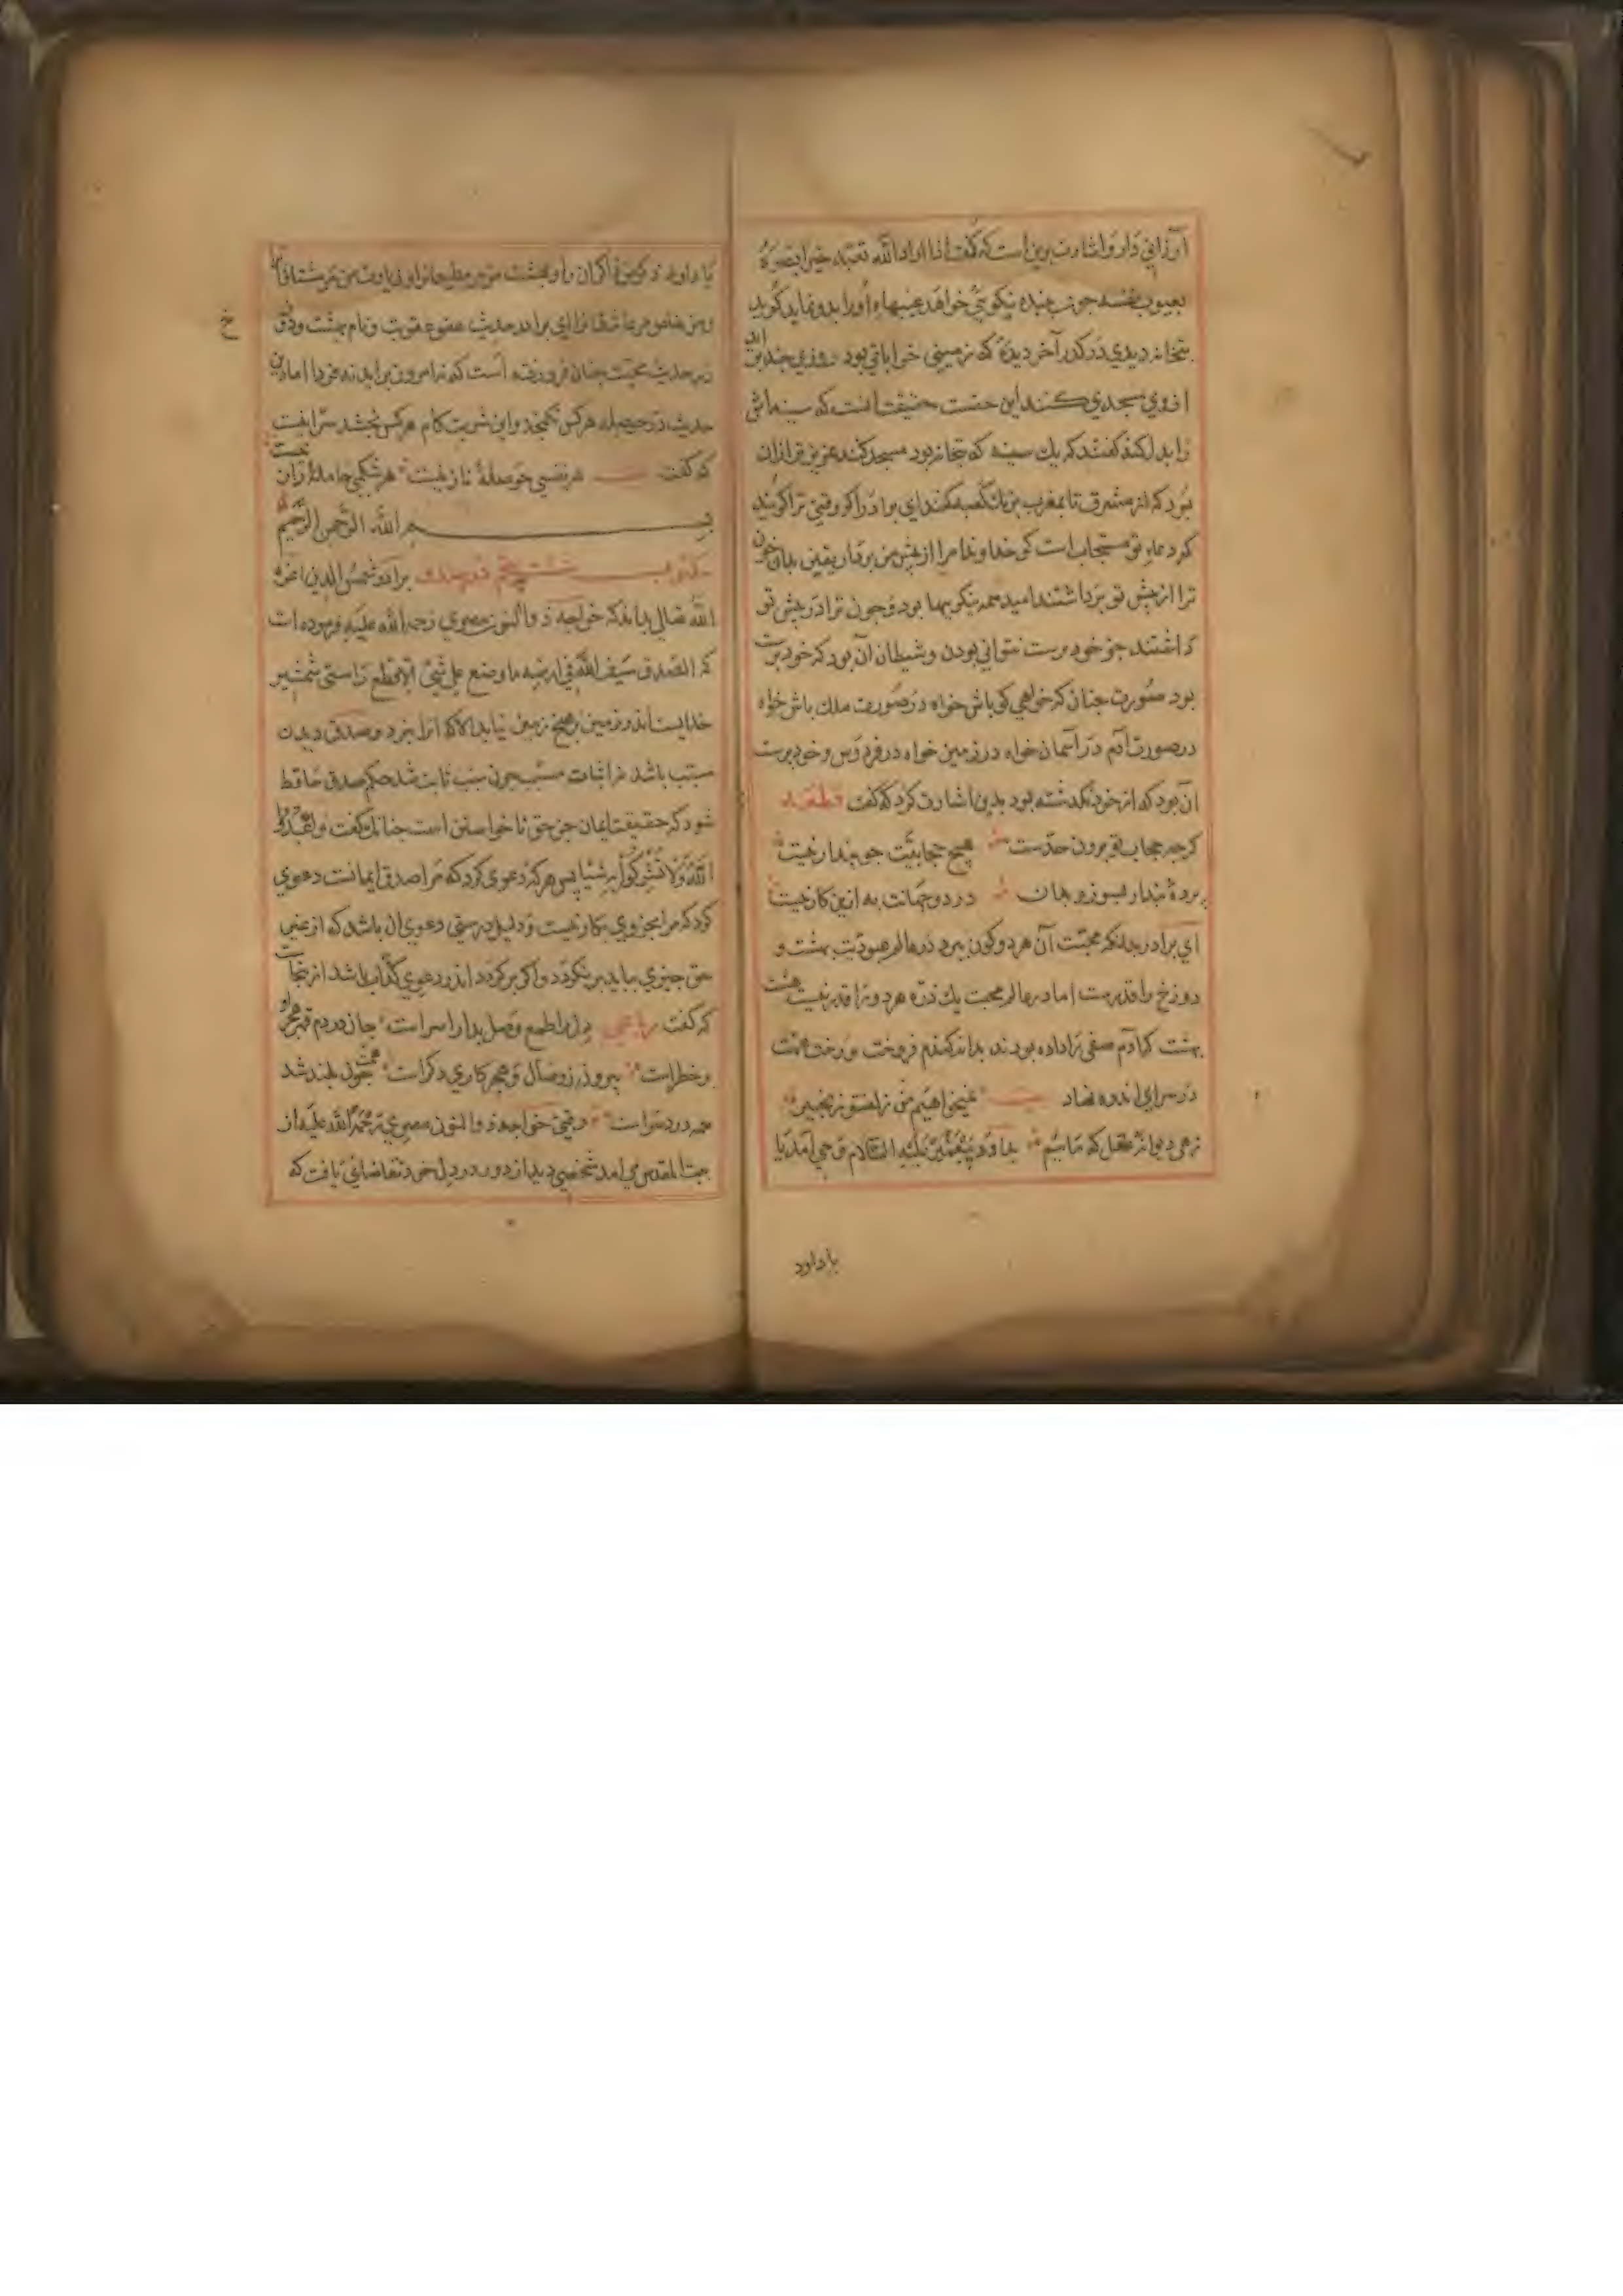 ارزانی دارد و اشارت برین است که گفت اذا اراد الله بعبد خیرا بصره
بعیوب نفسه چون ببنده نیکویی خواهد عیبهاء او را بدو نماید گویند
بتخانه دیدی در کدر آخر دیدهٔ که زمینی خراباتی بود روزی چند
از وی مسجدی کنند این حقیقت است که سینه
را بدل کند گفتند که یك سینه که بتخانه بود مسجد کنند عزیزتر از آن
بود که از مشرق تا بمغرب بزیك کعبه کنند ای برادر اگر وقتی ترا گویند
که دعاء تو مستجابست کو خداوندا مرا از پیش من بردار یقین بدان چون
ترا از پیش تو برداشتند امید همه نیکویها بود و چون ترا در پیش تو
گذاشتند جز خود پرست نتوانی بودن و شیطان آن بود که خود پرست
بود صورت چنان که خواهی کو باش خواه در صورت ملك باش خواه
در صورت آدم در آسمان خواه در زمین خواه در فردوس و خود پرست
آن بود که از خود نگذشته بود بدین اشارت کرد که گفت قطعه
گرچه حجاب تو برون حدست هیچ حجابیت چو پندار نیست
پردهٔ پندار بسوز و بدان در دو جهانت به ازین کار نیست
ای برادر بدانکه محبت آن هر دو کون ببرد در عالم عبودیت بهشت و
دوزخ را قدرست اما در عالم محبت یك ذره هر دو را قدر نیست هشت
بهشت که آدم صفی را داده بودند بدانه گندم فروخت و رخت همت
در سرای اندوه نهاد بیت نمیخواهیم من زلفت و زنجیر
زهی دیوانهٔ عقل که ماییم بداود پیغمبر علیه السلام وحی آمد یا
یا داود
یا داود ذکری للذاکرین و جنتی للمطیعین و زیارتی للمشتاقین
و من خاص مر عاشقانرا ای برادر حدیث عفو عقوبت و نام بهشت و دوزخ
خ
در حدیث محبت چنان فرو رفته است که نه امروز برآید نه فردا اما این
حدیث در حوصلهٔ هر کس نگنجد و این شربت کام هر کس نچشد سر اینست
که گفت بیت هر نفسی حوصلهٔ ناز نیست هر شکمی حاملهٔ راز نیست
بسم الله الرحمن الرحیم
مکتوب شست پنجم در صدق برادر شمس الدین اعزه
الله تعالی بداند که خواجه ذو النون مصری رحمه الله علیه فرموده است
که الصدق سیف الله فی ارضه ما وضع علی شیئ الا قطع راستی شمشیر
خدایست در زمین بر هیچ زمین نیاید الا که آنرا ببرد و صدق دیدن
مسبب باشد نه اثبات سبب چون سبب ثابت شد حکم صدق ساقط
شود که حقیقت ایمان جز حق ناخواستن است چنانك گفت واعبدوا
الله ولا تشرکوا به شیئا پس هر که دعوی کرد که مرا صدق ایمانست دعوی
کرد که مرا بجز وی بکار نیست و دلیل درستی دعوی آن باشد که از غیر
حق چیزی بیاید برنگردد و اگر برگردد اندر دعوی کذاب باشد از اینجاست
که گفت رباعی دلرا طمع وصل بدارا سراست جان در دم قهر هجر او
در خطراست بیرون ز وصال و هجر کاری دگراست همت چون بلند شد
همه درد سراست وقتی خواجه ذو النون مصری رحمه الله علیه از
بیت المقدس می آمد شخصی دید از دور در دل خود تقاضائی یافت که